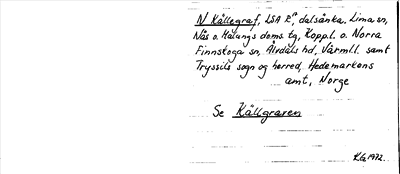 N Källegraf, LSA R:, dalsänka. Lima sn,
Näs o. Malungs doms. tg, Koppl. o. Norra
Finnskoga sn, Älvdals hd, Värmll. samt
Tryssils sogn og herred, Hedemarkens
amt, Norge
Se Källgraven
1972